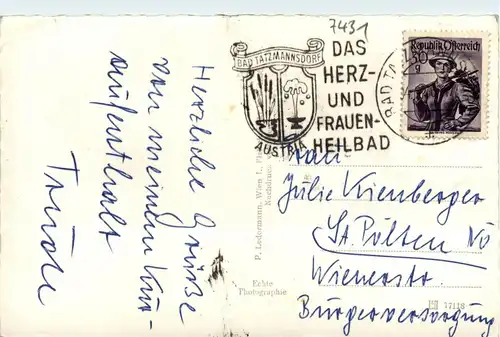 7431
BAD TATZMANNSDORF
AUSTRIA
DAS
HERZ-
UND
FRAUEN-
HEILBAD
BAD TA
Republik Österreich
Herzliche Grüße
von meinem Kur-
aufenthalt
Trude
P. Ledermann, Wien I.,
Echte
Photographie
Frau
Julie Kienberger
St. Pölten NÖ
Wienerstr.
Bürgerversorgung
17118